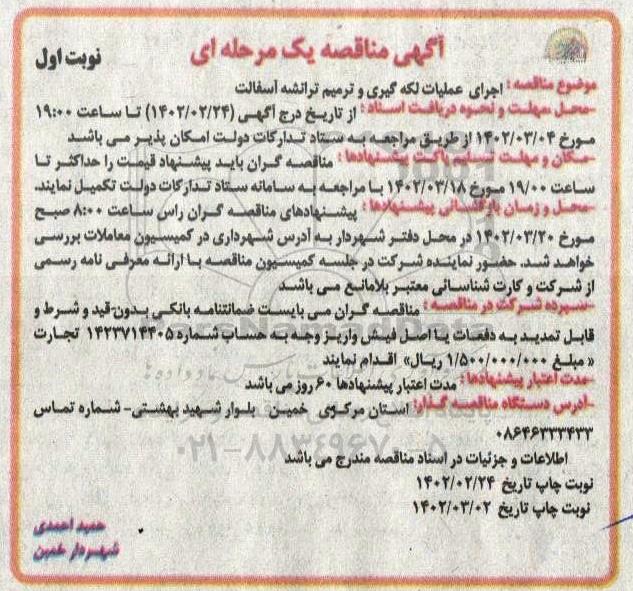 آگهی مناقصه یک مرحله ای
نوبت اول
موضوع مناقصه : اجرای عملیات لکه گیری و ترمیم ترانشه آسفالت
-محل مهلت و نحوه دریافت اسناد : از تاریخ درج آگهی (۱۴۰۲/۰۲/۲۴) تا ساعت ۱۹:۰۰
مورخ ۱۴۰۲/۰۳/۰۴ از طریق مراجعه به ستاد تدارکات دولت امکان پذیر می باشد
-مکان و مهلت تسلیم پاکت پیشنهادها : مناقصه گران باید پیشنهاد قیمت را حداکثر تا
ساعت ۱۹/۰۰ مورخ ۱۴۰۲/۰۳/۱۸ با مراجعه به سامانه ستاد تدارکات دولت تکمیل نمایند.
-محل و زمان بازگشائی پیشنهادها : پیشنهادهای مناقصه گران راس ساعت ۸:۰۰ صبح
مورخ ۱۴۰۲/۰۳/۲۰ در محل دفتر شهردار به آدرس شهرداری در کمیسیون معاملات بررسی
خواهد شد. حضور نماینده شرکت در جلسه کمیسیون مناقصه با ارائه معرفی نامه رسمی
از شرکت و کارت شناسائی معتبر بلامانع می باشد
-سپرده شرکت در مناقصه : مناقصه گران می بایست ضمانتنامه بانکی بدون-قید و شرط و
قابل تمدید به دفعات یا اصل فیش واریز وجه به حساب شماره ۱۴۲۳۷۱۴۴۰۵ تجارت
« مبلغ ۱/۵۰۰/۰۰۰/۰۰۰ ریال» اقدام نمایند
-مدت اعتبار پیشنهادها : مدت اعتبار پیشنهادها ۶۰ روز می باشد
-آدرس دستگاه مناقصه گذار: استان مرکزی خمین- بلوار شهید بهشتی- شماره تماس
۰۸۶۴۶۳۳۳۴۳۳
اطلاعات و جزئیات در اسناد مناقصه مندرج می باشد
نوبت چاپ تاریخ ۱۴۰۲/۰۲/۲۴
نوبت چاپ تاریخ ۱۴۰۲/۰۳/۰۲
حمید احمدی
شهردار خمین
ParsNamadData
۰۲۱-۸۸۳۴۹۶۷۰-۵